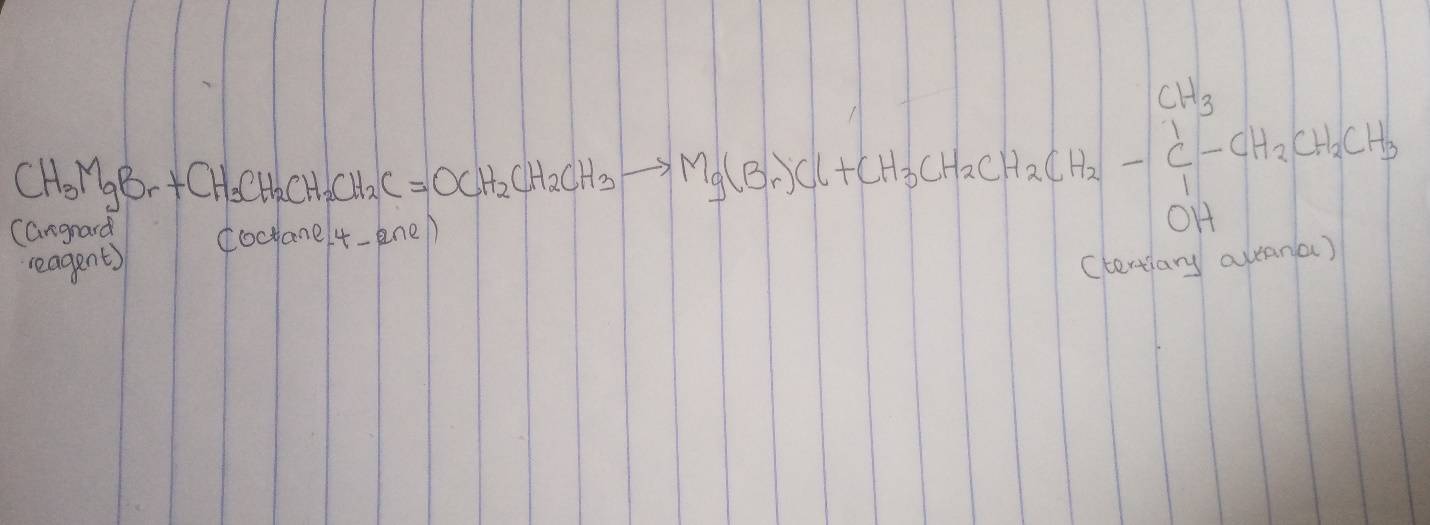 CH₃MgBr + CH₃CH₂CH₂CH₂C=OCH₂CH₂CH₃ → Mg(Br)Cl + CH₃CH₂CH₂CH₂ - C - CH₂CH₂CH₃
CH₃
OH
(Grignard reagent)
(octane-4-one)
(tertiary alkanol)